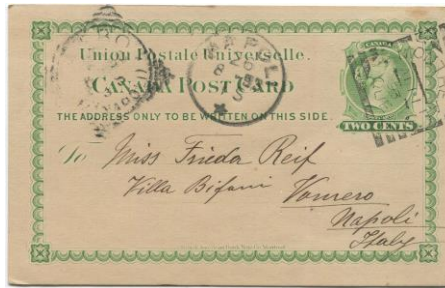 Union Postale Universelle.
CANADA POST CARD
THE ADDRESS ONLY TO BE WRITTEN ON THIS SIDE.
CANADA
TWO CENTS
NAPOLI
To Miss Frieda Reif
Villa Bifani Vomero
Napoli
Italy